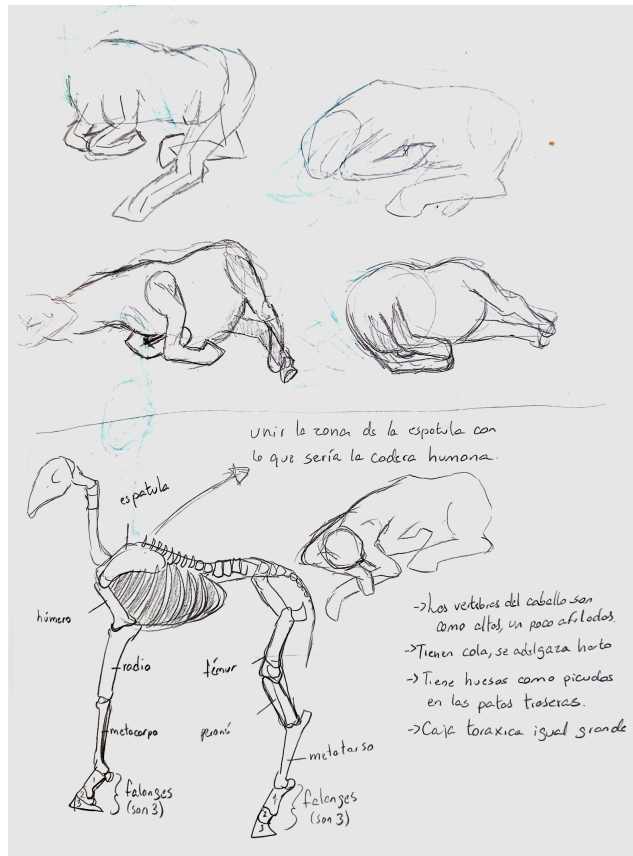 unir la zona de la espatula con
lo que sería la cadera humana.
espatula
húmero
radio
fémur
metacarpo
peroné
metatarso
1
2
3
falanges
(son 3)
1
2
3
falanges
(son 3)
-> Las vertebras del caballo son
como altas, un poco afiladas.
-> Tienen cola, se adelgaza harto
-> Tiene huesos como picudos
en las patas traseras.
-> Caja toraxica igual grande